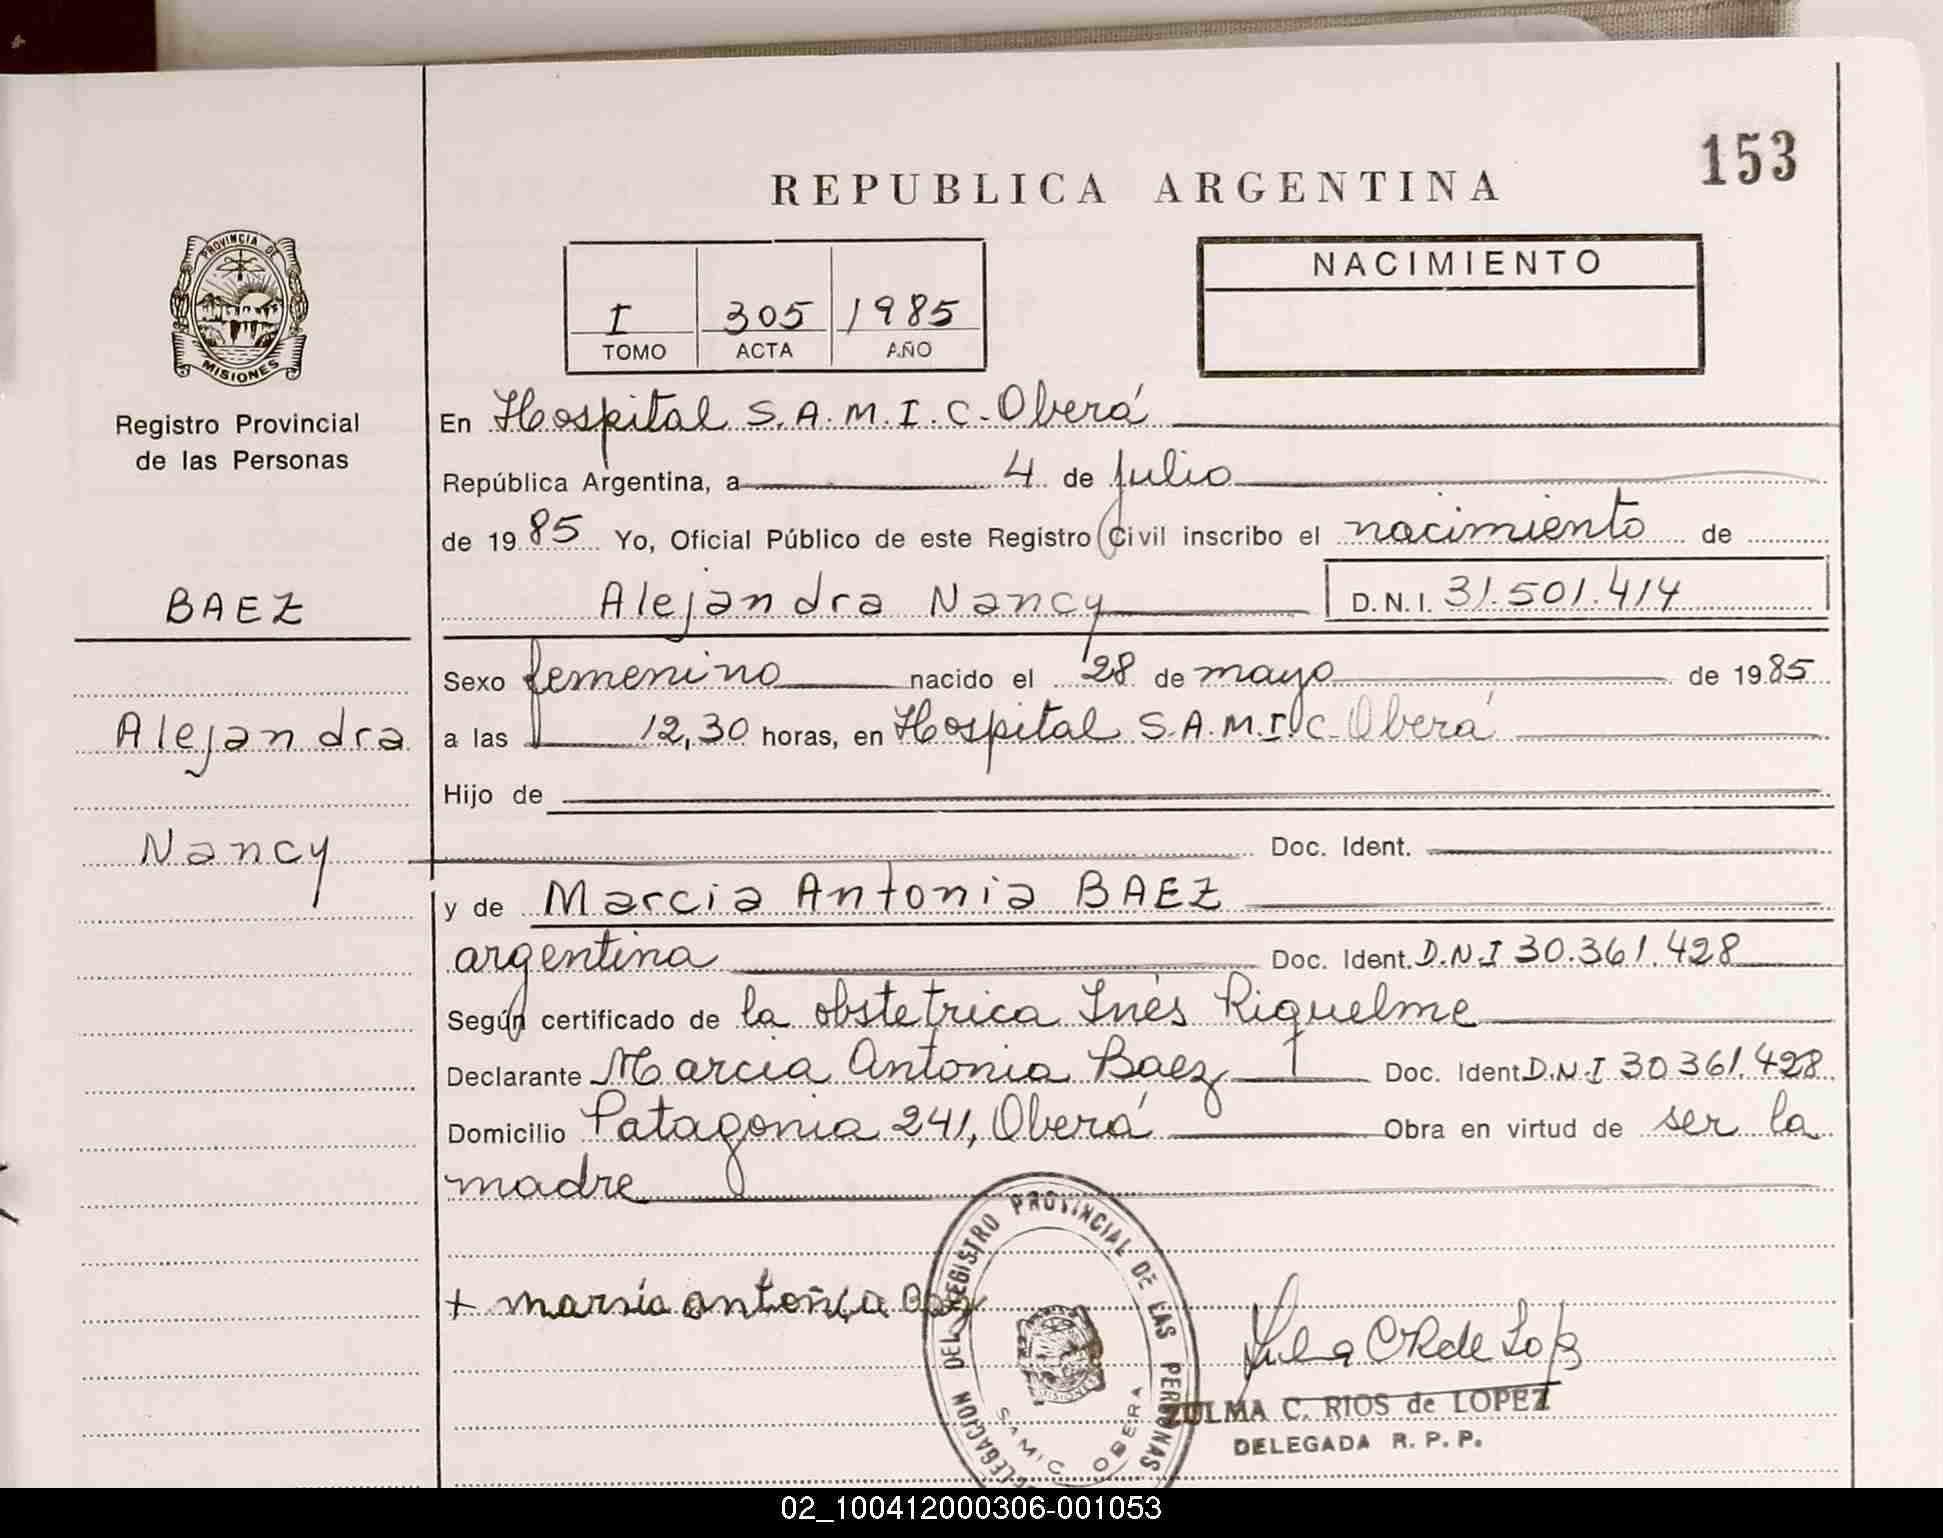 153
REPUBLICA ARGENTINA
PROVINCIA DE
MISIONES
Registro Provincial
de las Personas
I 305 1985
TOMO ACTA AÑO
NACIMIENTO
En Hospital S.A.M.I.C. Oberá
República Argentina, a 4 de julio
de 1985 Yo, Oficial Público de este Registro Civil inscribo el nacimiento de
BAEZ
Alejandra Nancy D.N.I. 31.501.414
Sexo femenino nacido el 28 de mayo de 1985
Alejandra
a las 12,30 horas, en Hospital S.A.M.I.C. Oberá
Hijo de
Nancy
Doc. Ident.
y de Marcia Antonia BAEZ
argentina Doc. Ident. D.N.I 30.361.428
Según certificado de la obstetrica Inés Riquelme
Declarante Marcia Antonia Baez Doc. Ident D.N.I 30 361.428
Domicilio Patagonia 241, Oberá Obra en virtud de ser la
madre
DELEGACION DEL REGISTRO PROVINCIAL DE LAS PERSONAS
MISIONES
SAMIC OBERA
+ marsia antoñia
ZULMA C. RIOS de LOPEZ
DELEGADA R.P.P.
02_100412000306-001053